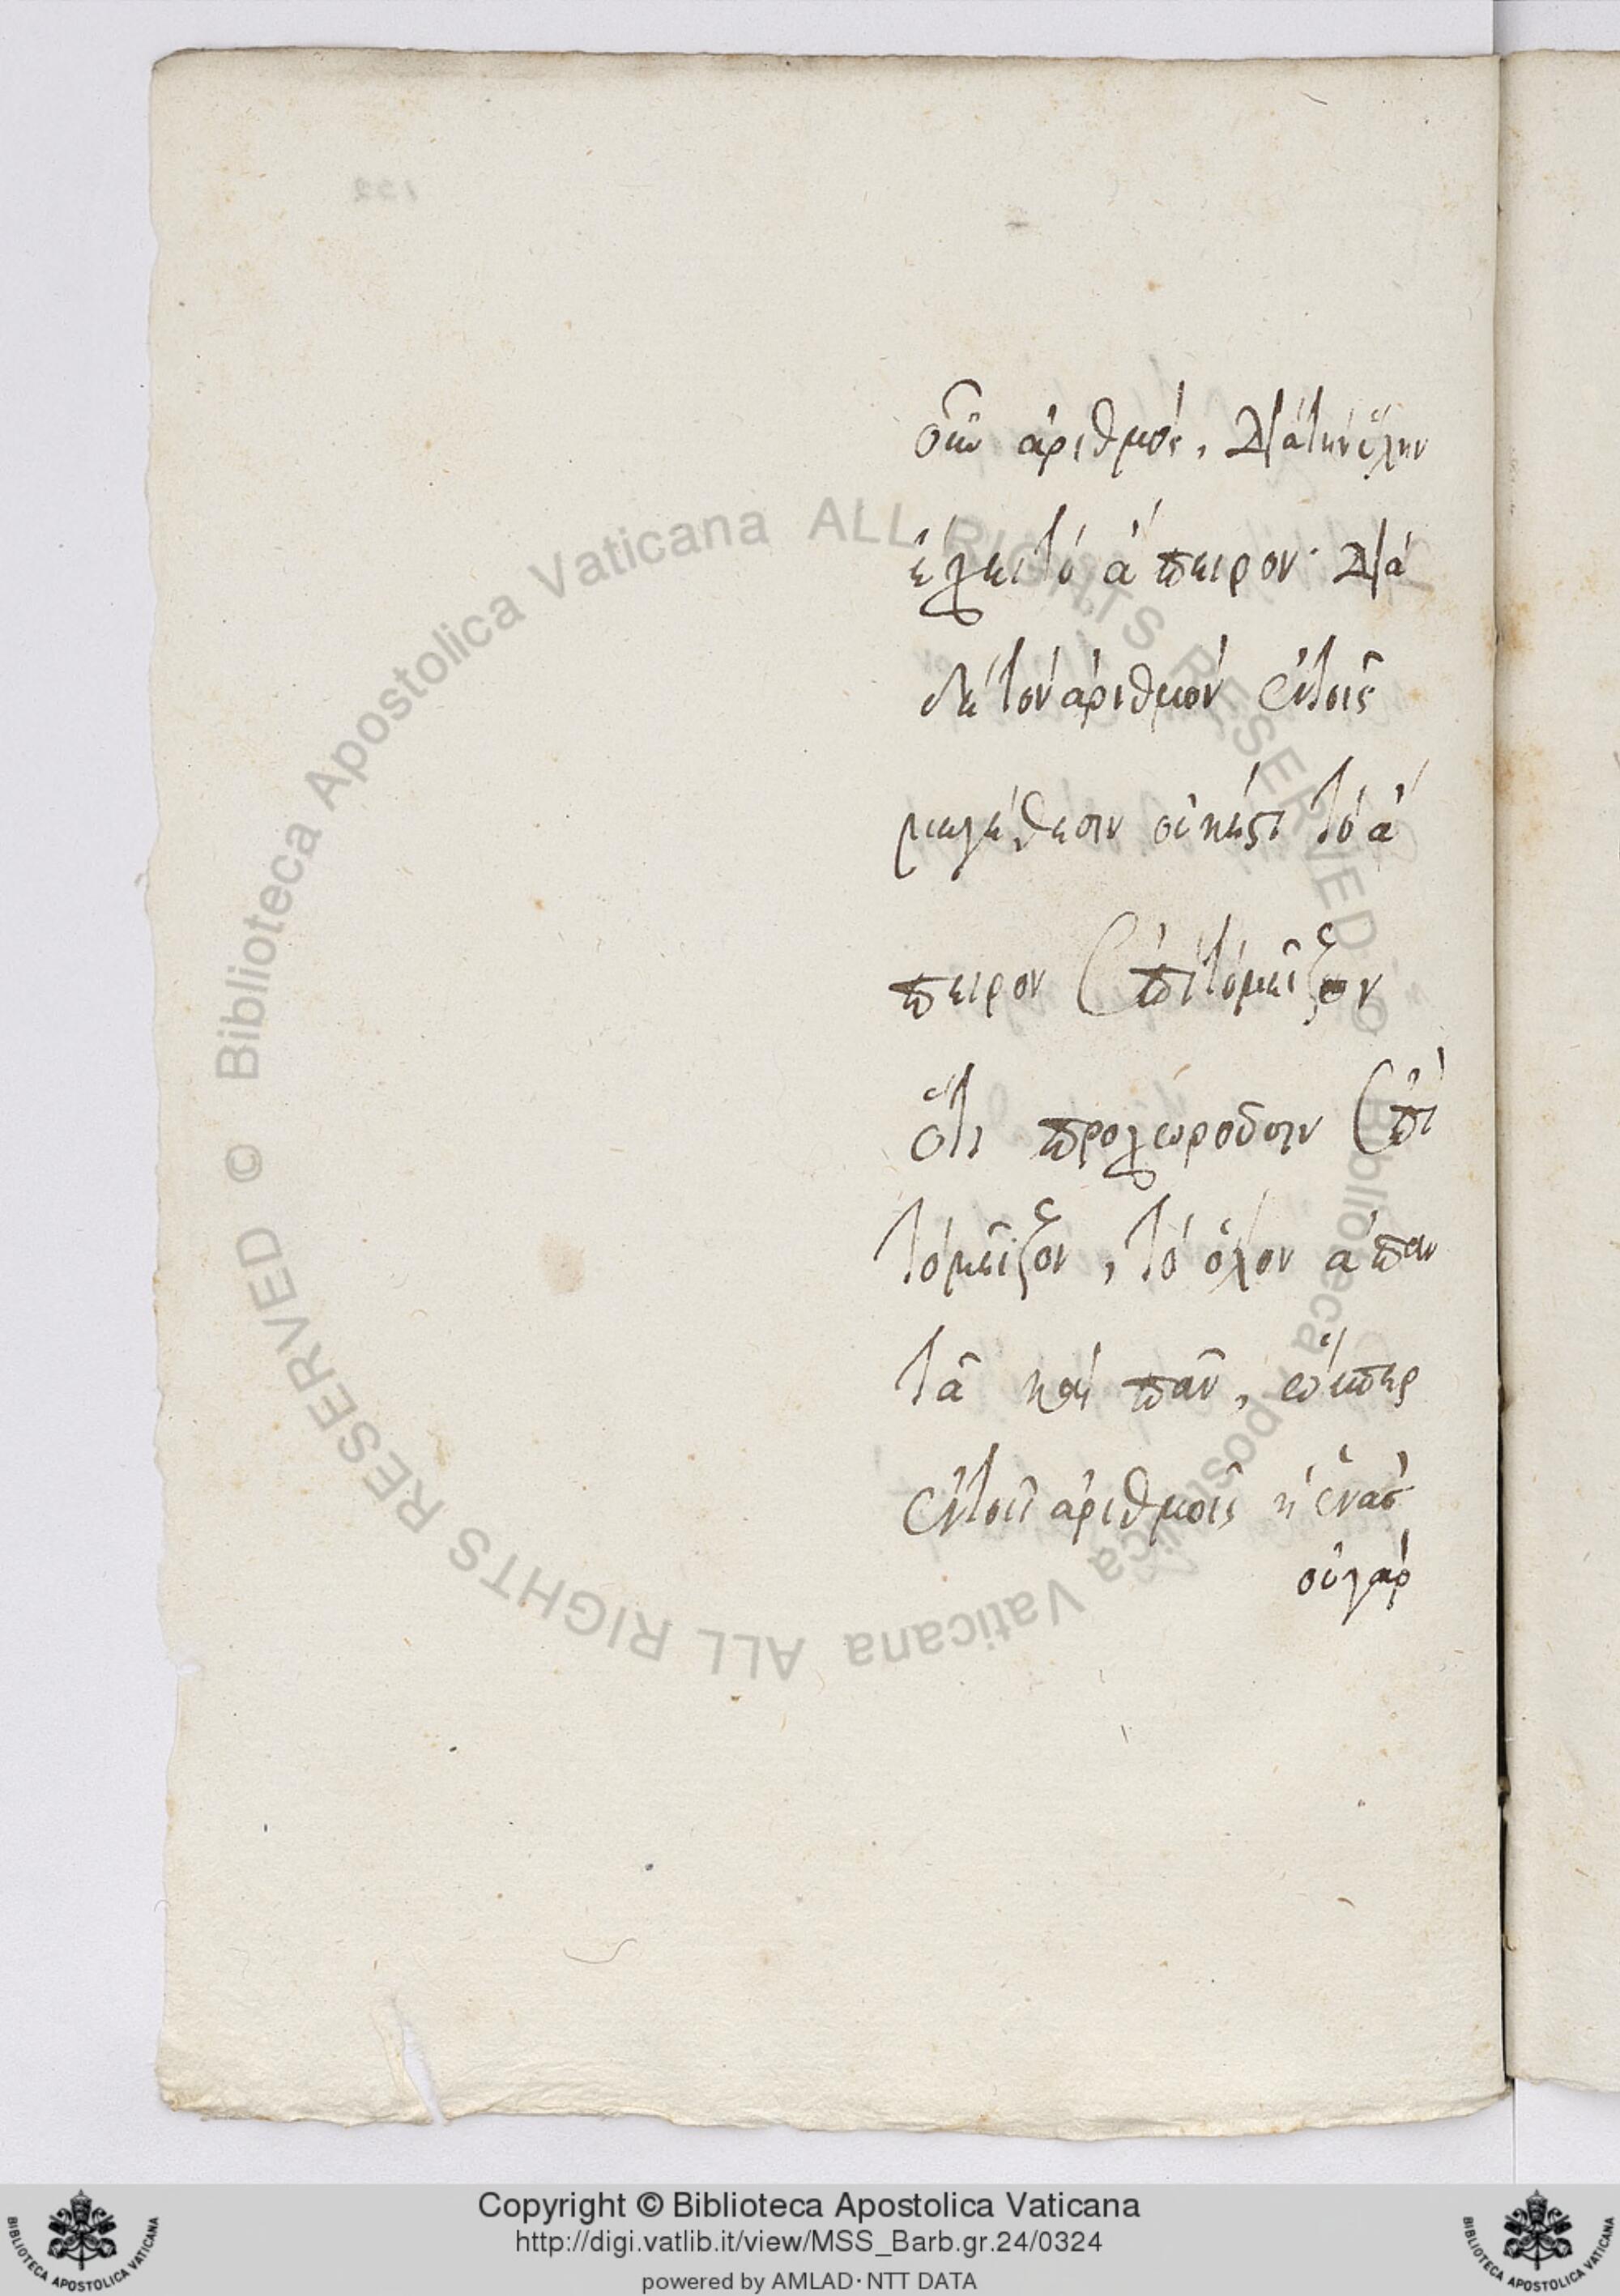 οὖν ἀριθμὸς, διὰ τὴν ὕλην
ἔχει τὸ ἄπειρον· διὰ
δὲ τὸν ἀριθμὸν ἐν τοῖς
μεγέθεσιν οὐκέτι τὸ ἄ
πειρον ἐπὶ τὸ μεῖζον
ὅτι προχωροῦσιν ἐπὶ
τὸ μεῖζον, τὸ ὅλον ἀπαν
τᾶ καὶ πᾶν, ὥσπερ
ἐν τοῖς ἀριθμοῖς ἡ ἑνὰς
οὐ γὰρ
© Biblioteca Apostolica Vaticana ALL RIGHTS RESERVED © Biblioteca Apostolica Vaticana ALL RIGHTS RESERVED
Copyright © Biblioteca Apostolica Vaticana
http://digi.vatlib.it/view/MSS_Barb.gr.24/0324
powered by AMLAD·NTT DATA
BIBLIOTECA APOSTOLICA VATICANA
BIBLIOTECA APOSTOLICA VATICANA